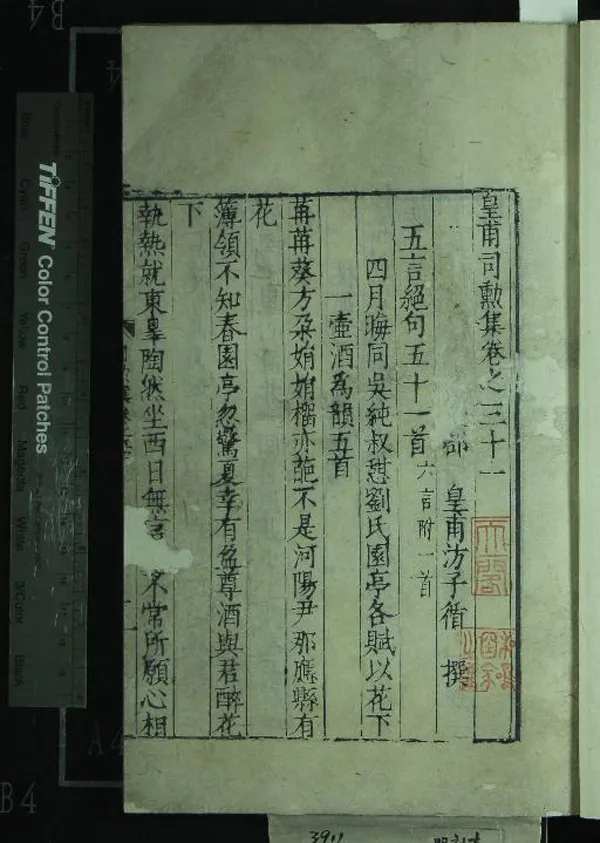 皇甫司勳集卷之三十一
皇甫汸子循 撰
五言絕句五十一首 六言附一首
四月晦同吳純叔憇劉氏園亭各賦以花下
一壺酒為韻五首
苒苒葵方朶娟娟橊亦葩不是河陽尹那應縣有
花
簿領不知春園亭忽驚夏幸有盈尊酒與君醉花
下
執熱就東皋陶然坐西日無言 常所願心相
TIFFEN Color Control Patches
Blue
Cyan
Green
Yellow
Red
Magenta
White
3/Color
Black
B4
A4
B4
3911